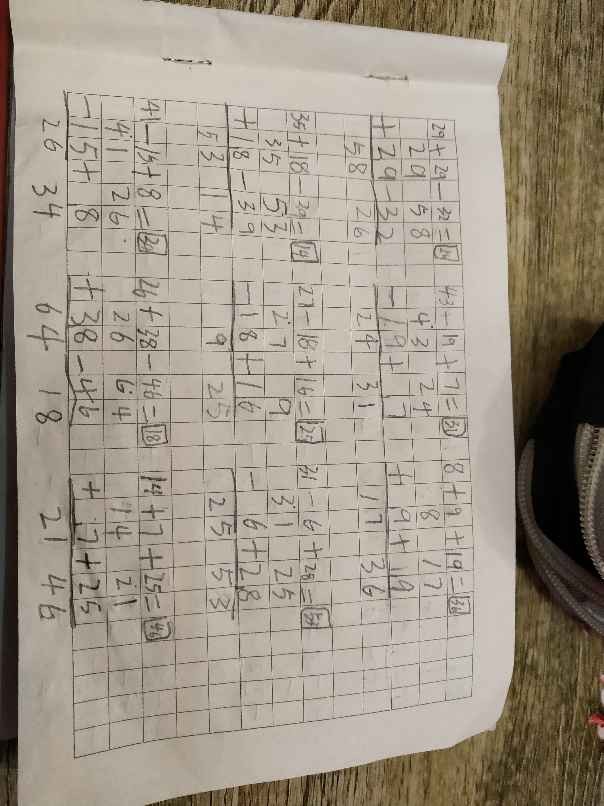 29+29-32=26 43-19+7=31 8+9+19=36
29 58 43 24 8 17
+29-32 -19+7 +9+19
58 26 24 31 17 36
35+18-39=14 27-18+16=25 31-6+28=53
35 53 27 9 31 25
+18-39 -18+16 -6+28
53 14 9 25 25 53
41-15+8=34 26+38-46=18 14+7+25=46
41 26 26 64 14 21
-15+8 +38-46 +7+25
26 34 64 18 21 46